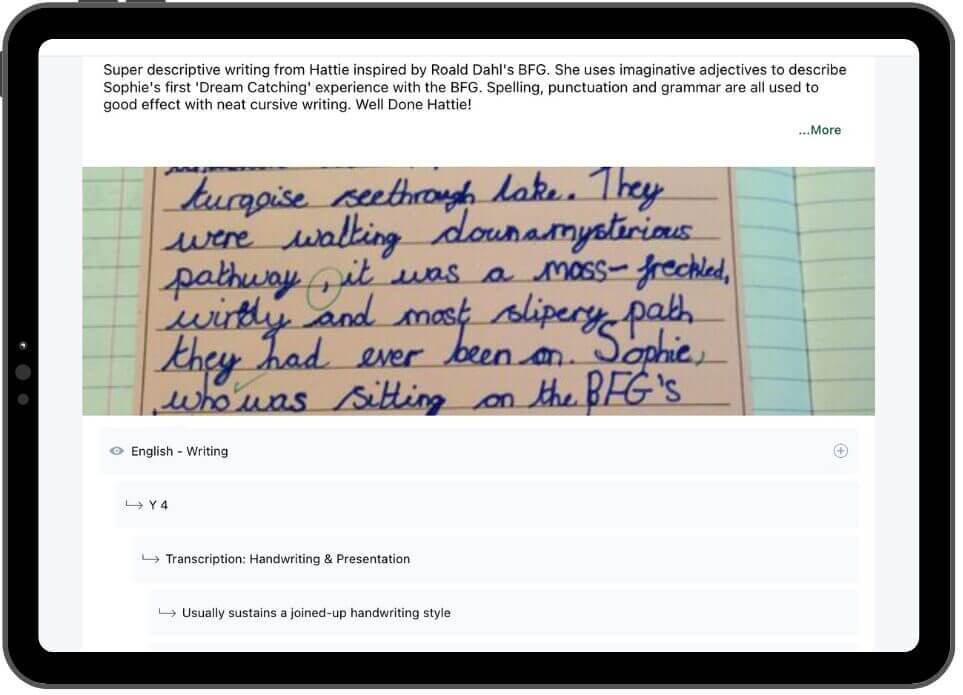 Super descriptive writing from Hattie inspired by Roald Dahl's BFG. She uses imaginative adjectives to describe
Sophie's first 'Dream Catching' experience with the BFG. Spelling, punctuation and grammar are all used to
good effect with neat cursive writing. Well Done Hattie!
...More
turqoise seethrough lake. They
were walking down a mysterious
pathway, it was a moss-freckled,
and most slipery path
they had ever been on. Sophie,
who was sitting on the BFG's
English - Writing
Y 4
Transcription: Handwriting & Presentation
Usually sustains a joined-up handwriting style